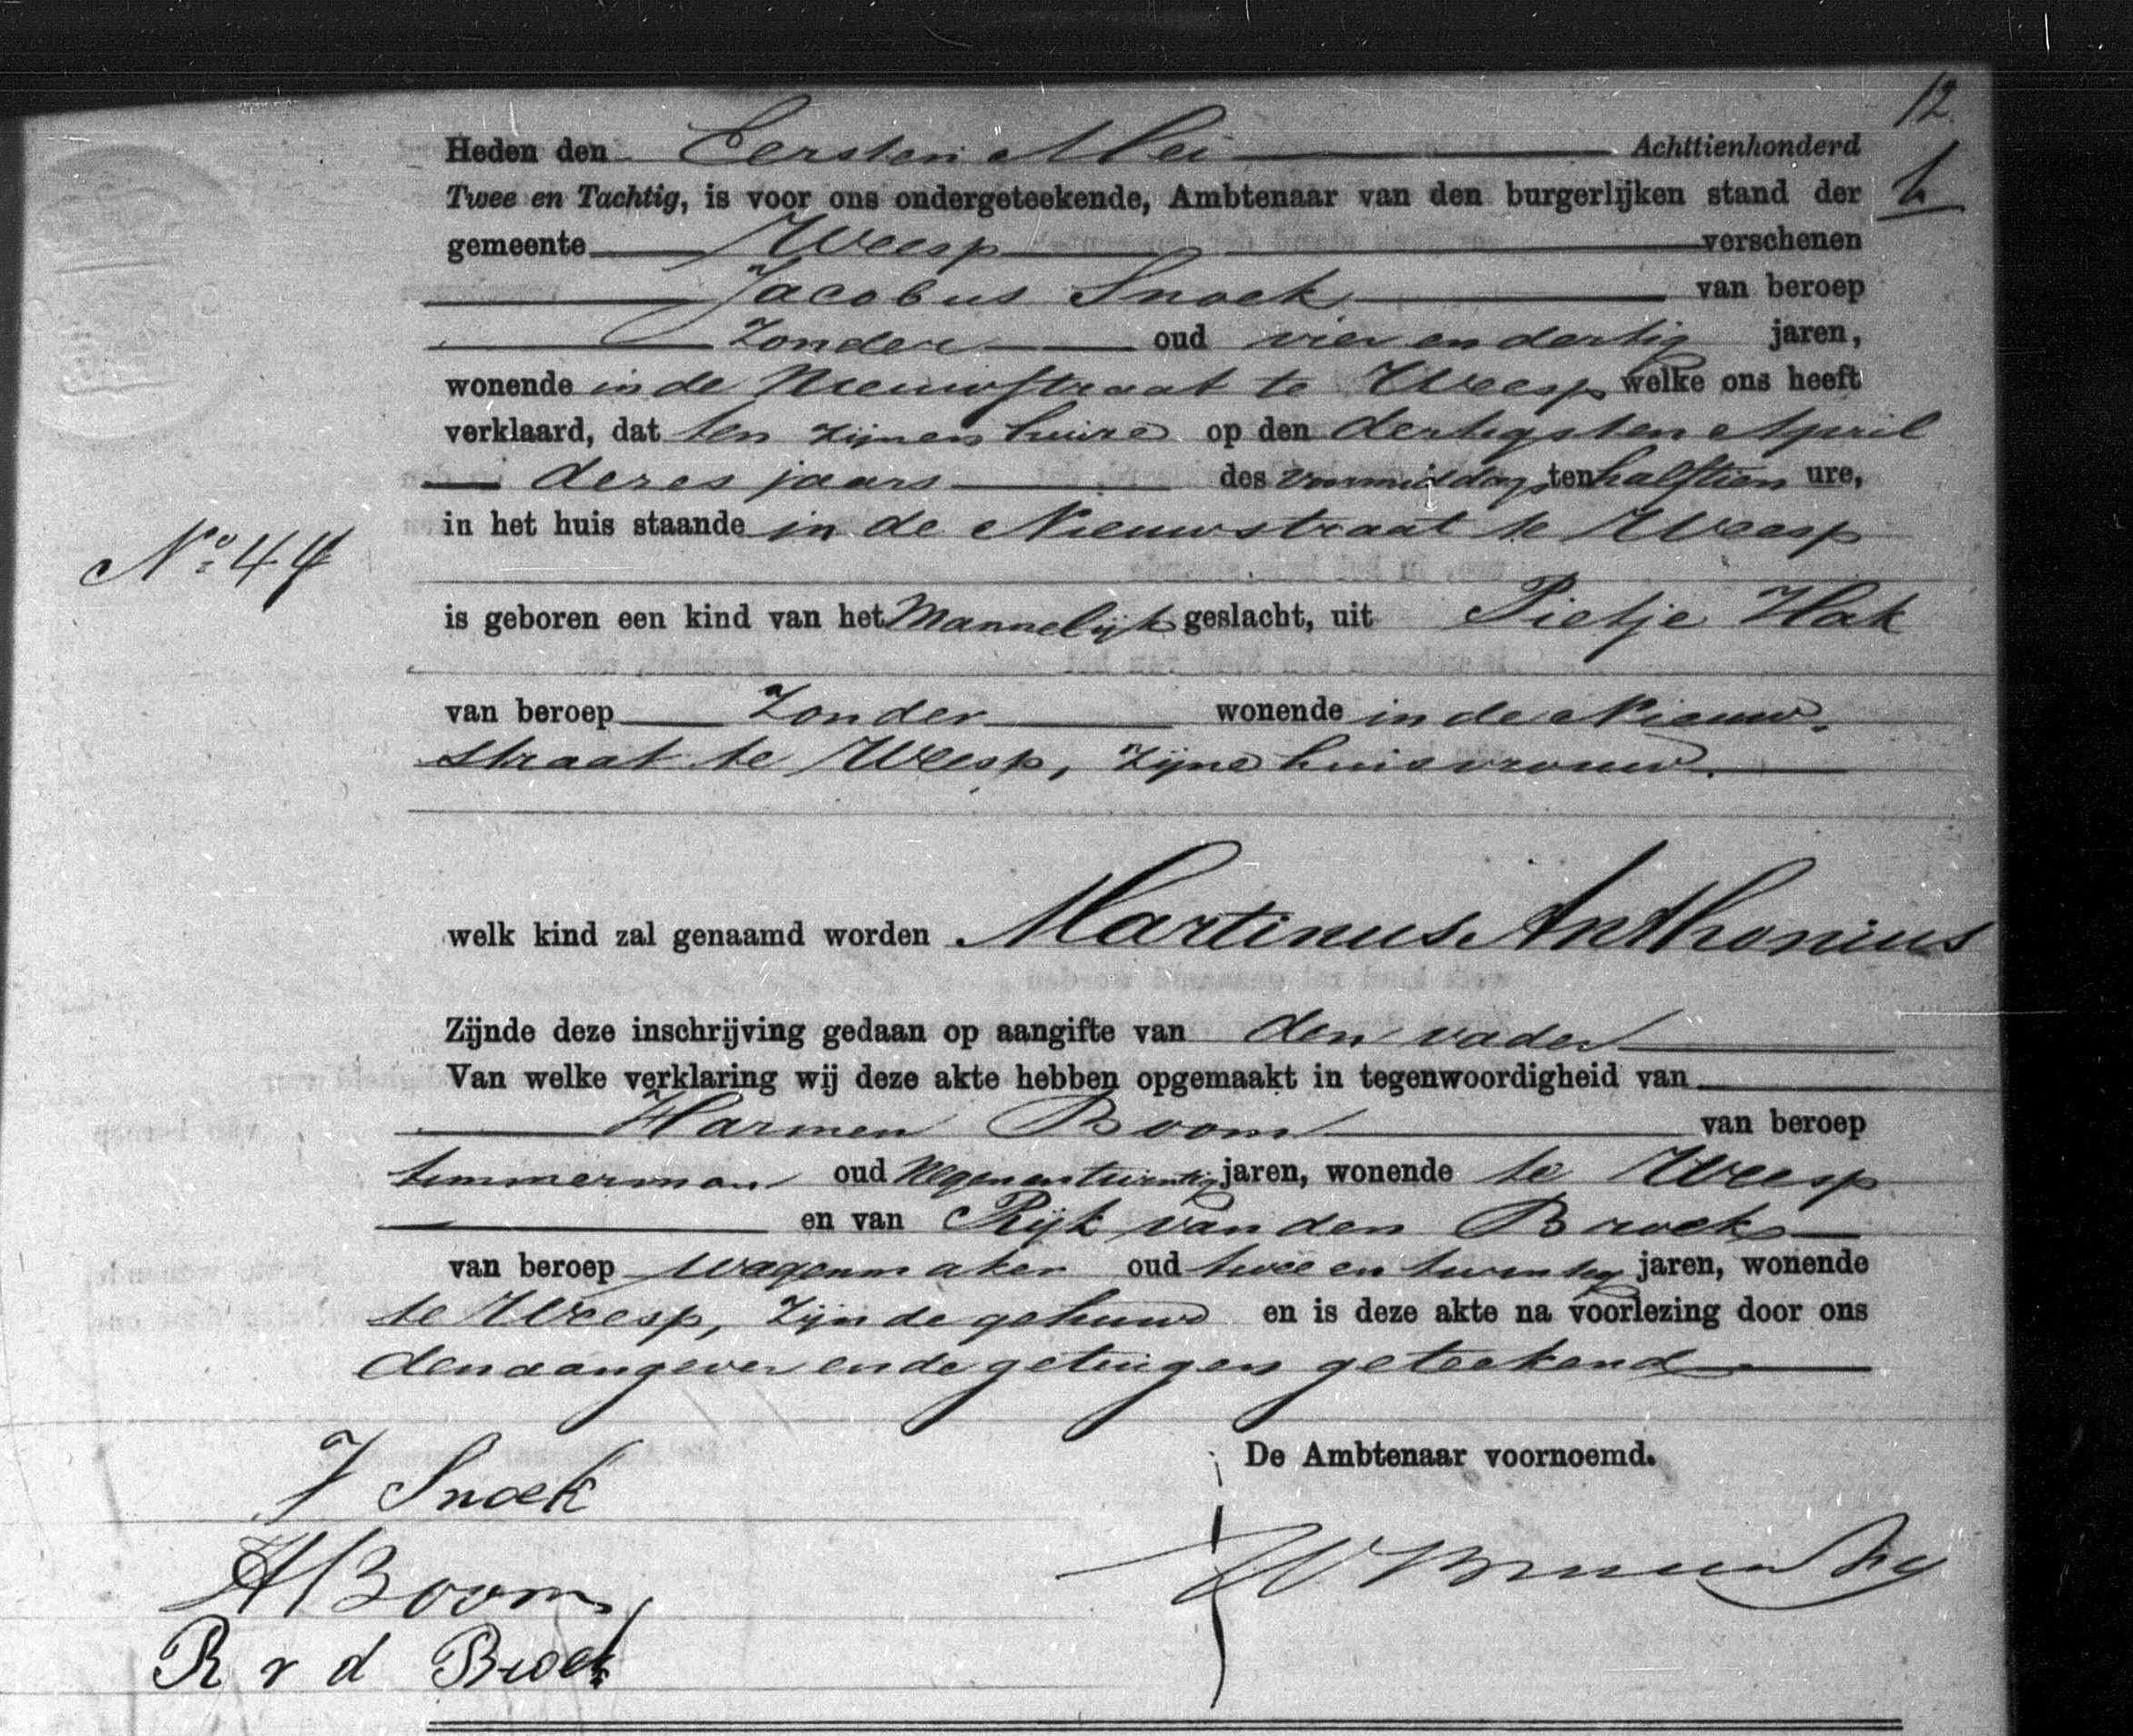 12
Heden den Eersten Mei Achttienhonderd
Twee en Tachtig, is voor ons ondergeteekende, Ambtenaar van den burgerlijken stand der
gemeente Weesp verschenen
Jacobus Snoek van beroep
Zonder oud vier en dertig jaren,
wonende in de Nieuwstraat te Weesp welke ons heeft
verklaard, dat ten zijnen huize op den dertigsten April
dezes jaars des voormiddags ten halftien ure,
in het huis staande in de Nieuwstraat te Weesp
No. 44
is geboren een kind van het Mannelijk geslacht, uit Pietje Hak
van beroep Zonder wonende in de Nieuw-
straat te Weesp, zijne huisvrouw.
welk kind zal genaamd worden Martinus Anthonius
Zijnde deze inschrijving gedaan op aangifte van den vader
Van welke verklaring wij deze akte hebben opgemaakt in tegenwoordigheid van
Harmen Boom van beroep
timmerman oud Negenentwintig jaren, wonende te Weesp
en van Rijk van den Broek
van beroep wagenmaker oud twee en twintig jaren, wonende
te Weesp, zijnde gehuwd en is deze akte na voorlezing door ons
den aangever en de getuigen geteekend
De Ambtenaar voornoemd.
J Snoek
H Boom
R v d Broek